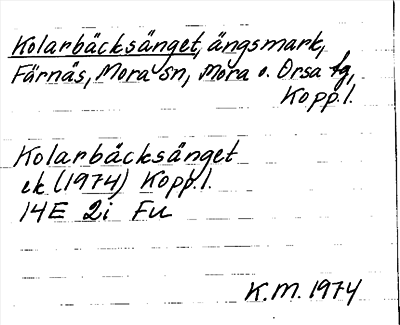 Kolarbäcksänget, ängsmark,
Färnäs, Mora sn, Mora o. Orsa tg,
Kopp. l.
Kolarbäcksänget
ek (1974) Kopp. l.
14E 2i Fu
K.M. 1974